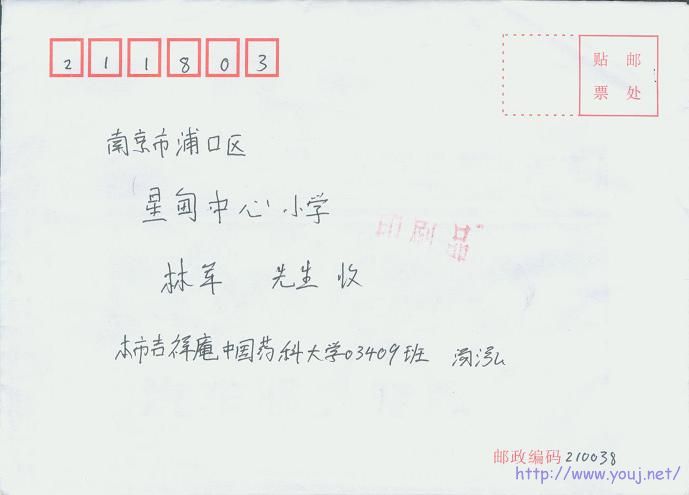 211803
贴邮
票处
南京市浦口区
星甸中心小学
印刷品
林军 先生 收
本市吉祥庵中国药科大学03409班
邮政编码210038
http://www.youj.net/